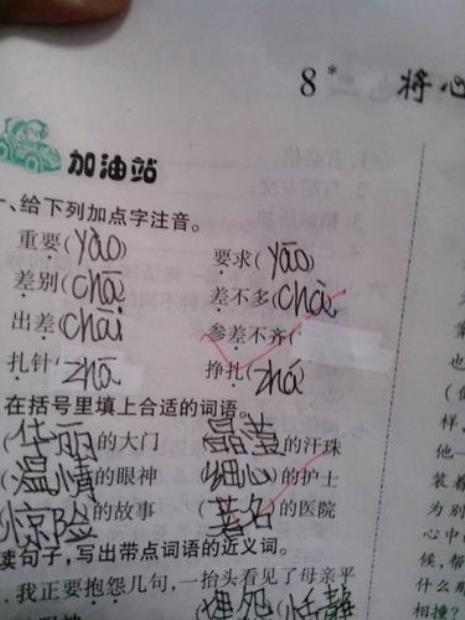 8* 将心
加油站
一、给下列加点字注音。
重要(yào) 要求(yāo)
差别(chā) 差不多(chà)
出差(chāi) 参差不齐(
扎针(zhā 挣扎(zhá)
在括号里填上合适的词语。
(华丽的大门 晶莹)的汗珠
(温情)的眼神 (细心)的护士
惊险的故事 (著名)的医院
读句子,写出带点词语的近义词。
.我正要抱怨几句,一抬头看见了母亲平
(埋怨(恬静
也
样,
他一
装着
为别
心中
候,帮
什么那
相撞?